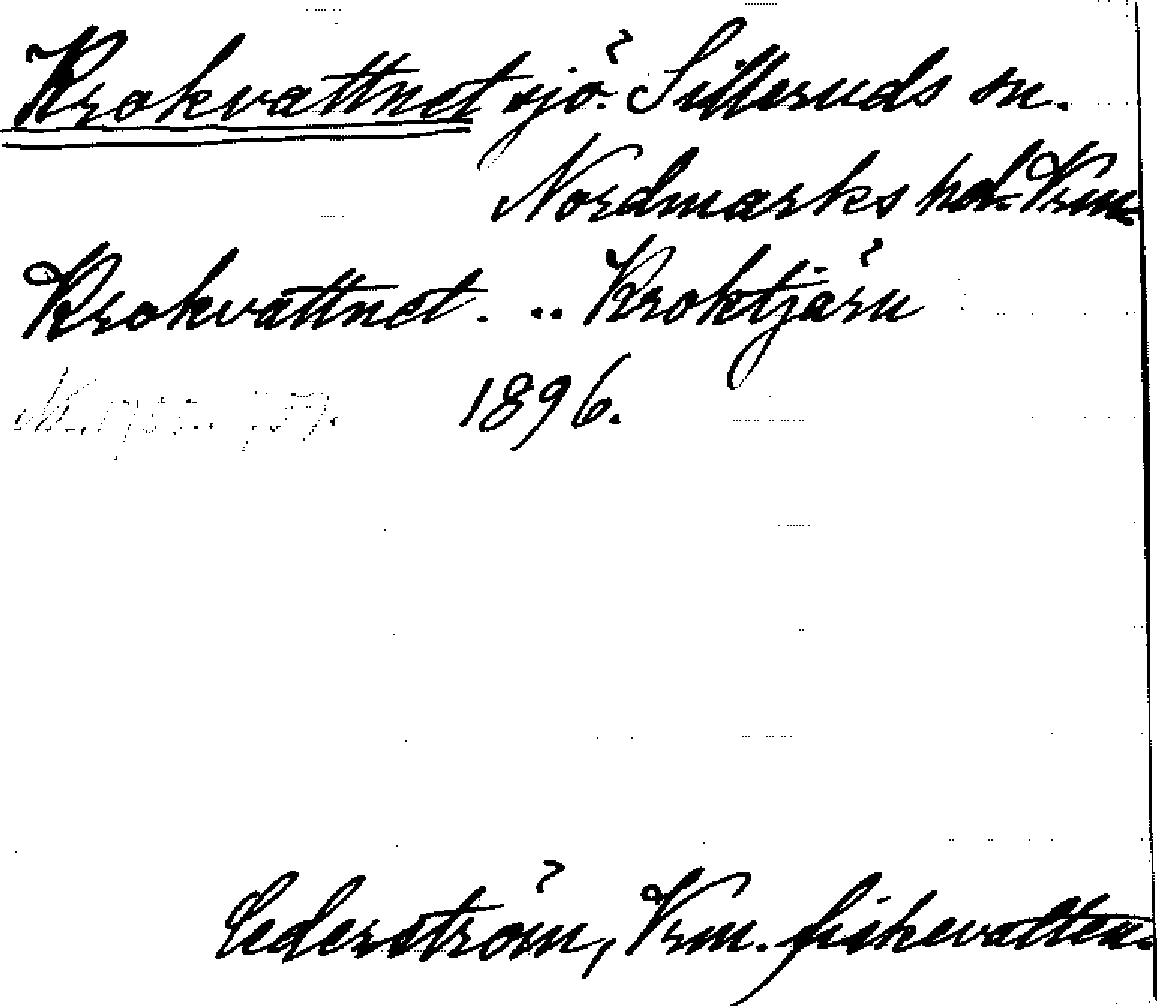 Krokvattnet sjö. Silleruds sn.
Nordmarks hd. Vrm.
Krokvattnet. .. Kroktjärn
1896.
Cederström, Vrm. fiskevatten.